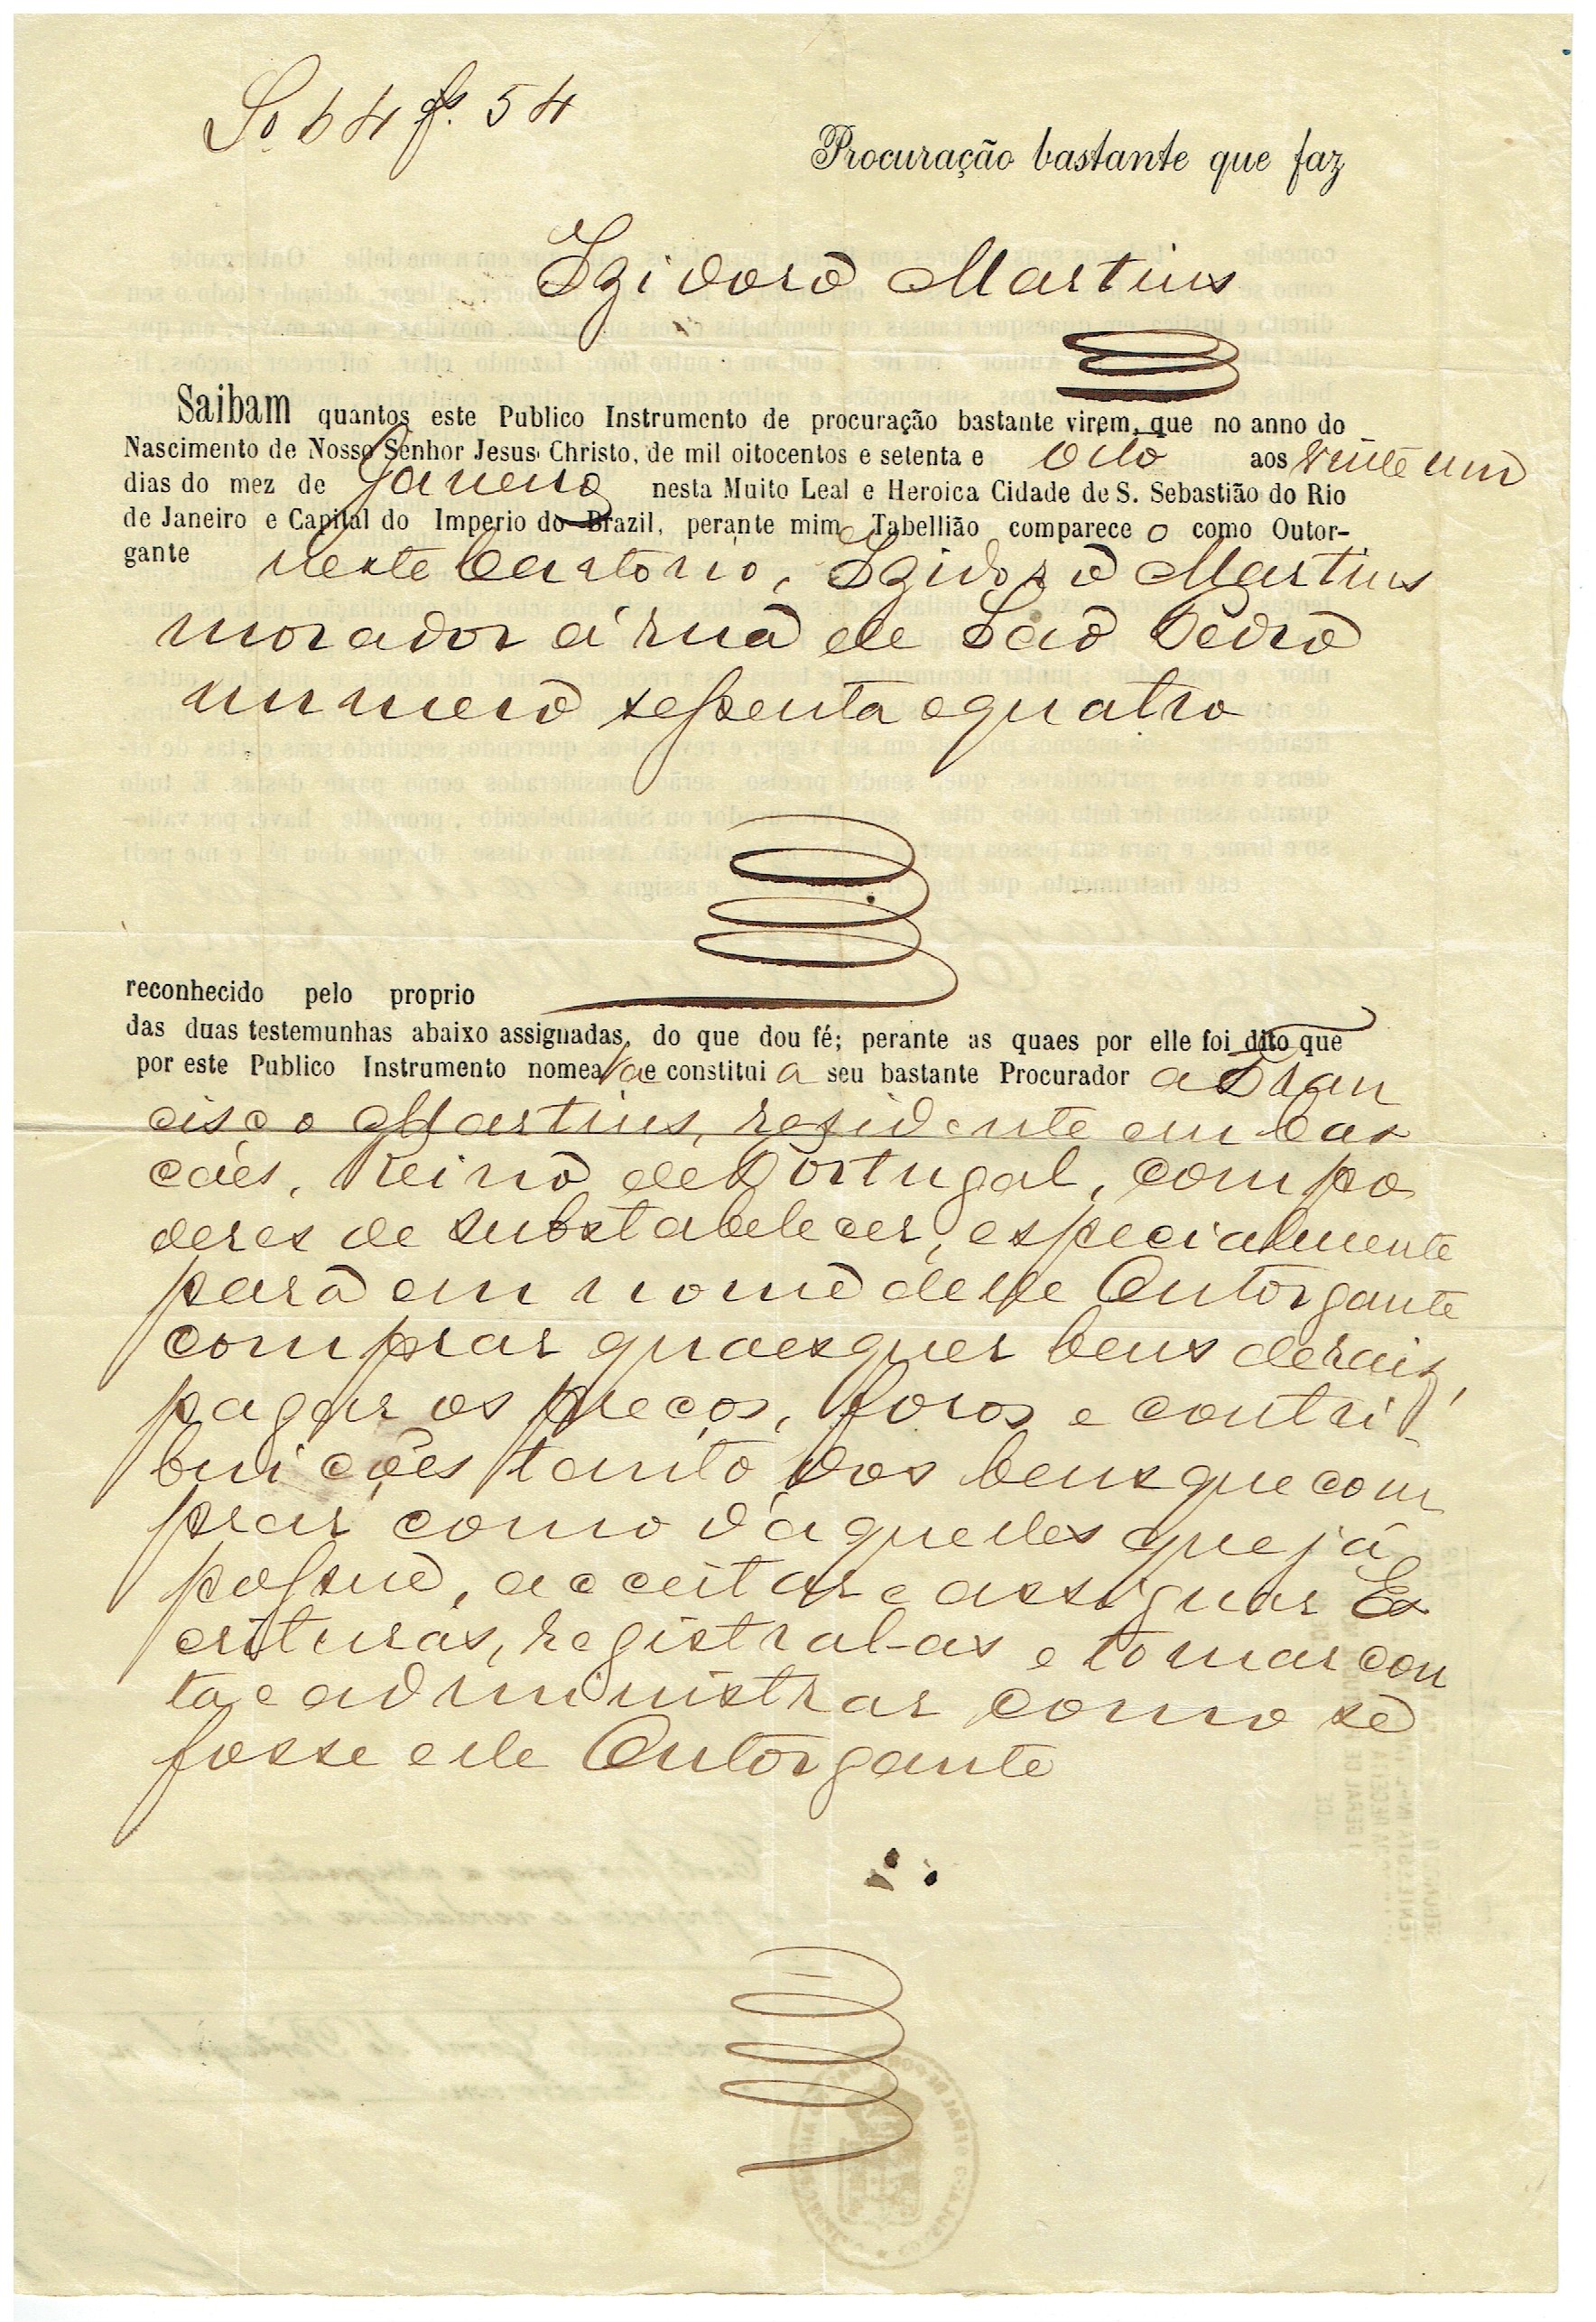 Lo 64 fs. 54
Procuração bastante que faz
Izidoro Martins
Saibam quantos este Publico Instrumento de procuração bastante virem, que no anno do
Nascimento de Nosso Senhor Jesus Christo, de mil oitocentos e setenta e oito aos vinte um
dias do mez de Janeiro nesta Muito Leal e Heroica Cidade de S. Sebastião do Rio
de Janeiro e Capital do Imperio do Brazil, perante mim Tabellião comparece o como Outor-
gante neste Cartorio, Izidoro Martins
morador á rua de São Pedro
numero sessenta e quatro
reconhecido pelo proprio
das duas testemunhas abaixo assignadas, do que dou fé; perante as quaes por elle foi dito que
por este Publico Instrumento nomea va e constitui a seu bastante Procurador a Fran
cisco Martins, residente em Cas
cáes, Reino de Portugal, com po
deres de substabelecer, especialmente
para em nome delle Outorgante
comprar quaesquer bens de raiz,
pagar os preços, foros e contri-
buições tanto dos bens que com
prar como d'aquelles que já
possue, acceitar e assignar Es
crituras, registral-as e tomar con
ta e administrar como se
fosse elle Outorgante